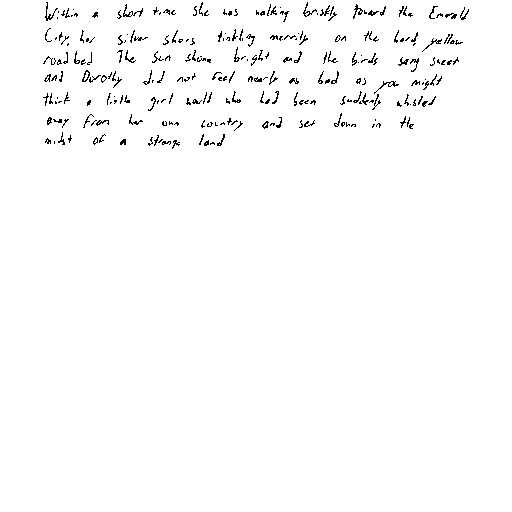 Within a short time she was walking briskly toward the Emerald
City, her silver shoes tinkling merrily on the hard, yellow
roadbed The sun shone bright and the birds sang sweet
and Dorothy did not feel nearly as bad as you might
think a little girl would who had been suddenly whisked
away from her own country and set down in the
midst of a strange land